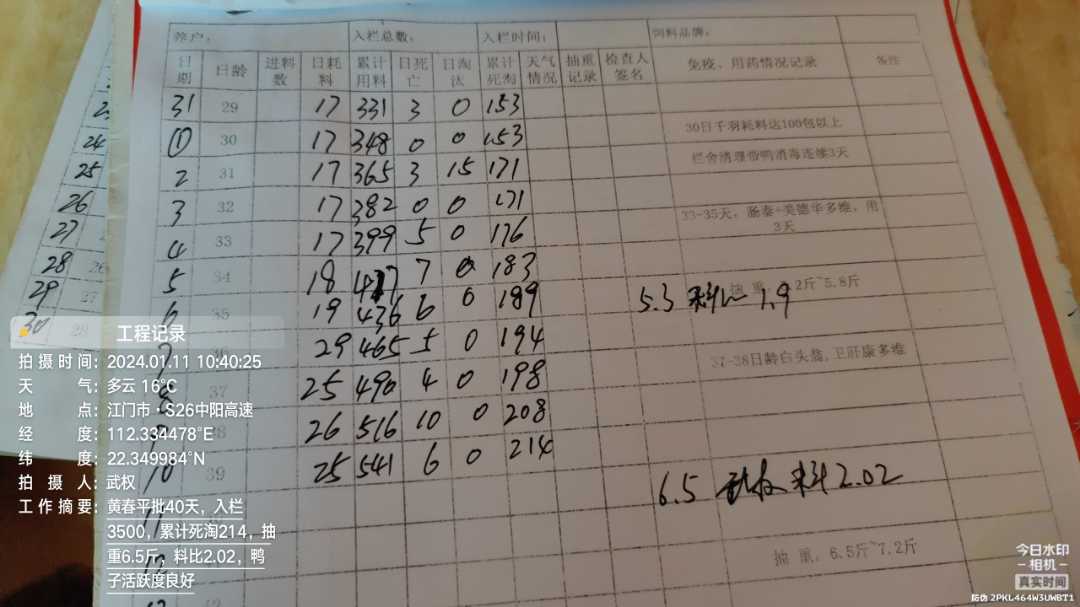 养户： 入栏总数： 入栏时间： 饲料品牌：
日期 日龄 进料数 日耗料 累计用料 日死亡 日淘汰 累计死淘 天气情况 抽重记录 检查人签名 免疫、用药情况记录 备注
31 29 17 331 3 0 153
① 30 17 348 0 0 153 30日千羽耗料达100包以上
2 31 17 365 3 15 171 栏舍清理带鸭消毒连续3天
3 32 17 382 0 0 171
33-35天，肠泰+美德华多维，用3天
4 33 17 399 5 0 176
5 34 18 417 7 0 183
抽重 2斤~5.8斤
6 35 19 436 6 0 189 5.3 料比 1.9
7 36 29 465 5 0 194
37-38日龄白头翁,卫肝康多维
8 37 25 490 4 0 198
9 38 26 516 10 0 208
10 39 25 541 6 0 214
6.5 武权 料2.02
11
12 抽重：6.5斤~7.2斤
13 42
23
24
25
26
27
28 26
29 27
30 28
工程记录
拍摄时间：2024.01.11 10:40:25
天气：多云 16°C
地点：江门市·S26中阳高速
经度：112.334478°E
纬度：22.349984°N
拍摄人：武权
工作摘要：黄春平批40天，入栏
3500，累计死淘214，抽
重6.5斤，料比2.02，鸭
子活跃度良好
今日水印
-相机-
真实时间
防伪 2PKL464W3UWBT1